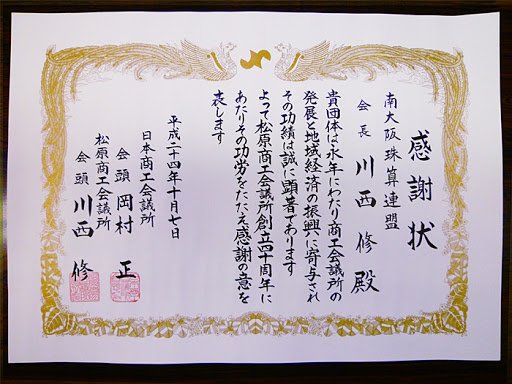 感謝状
南大阪珠算連盟
会長 川西修殿
貴団体は永年にわたり商工会議所の
発展と地域経済の振興に寄与され
その功績は誠に顕著であります
よって松原商工会議所創立四十周年に
あたりその功労をたたえ感謝の意を
表します
平成二十四年十月七日
日本商工会議所
会頭 岡村正
松原商工会議所
会頭 川西修